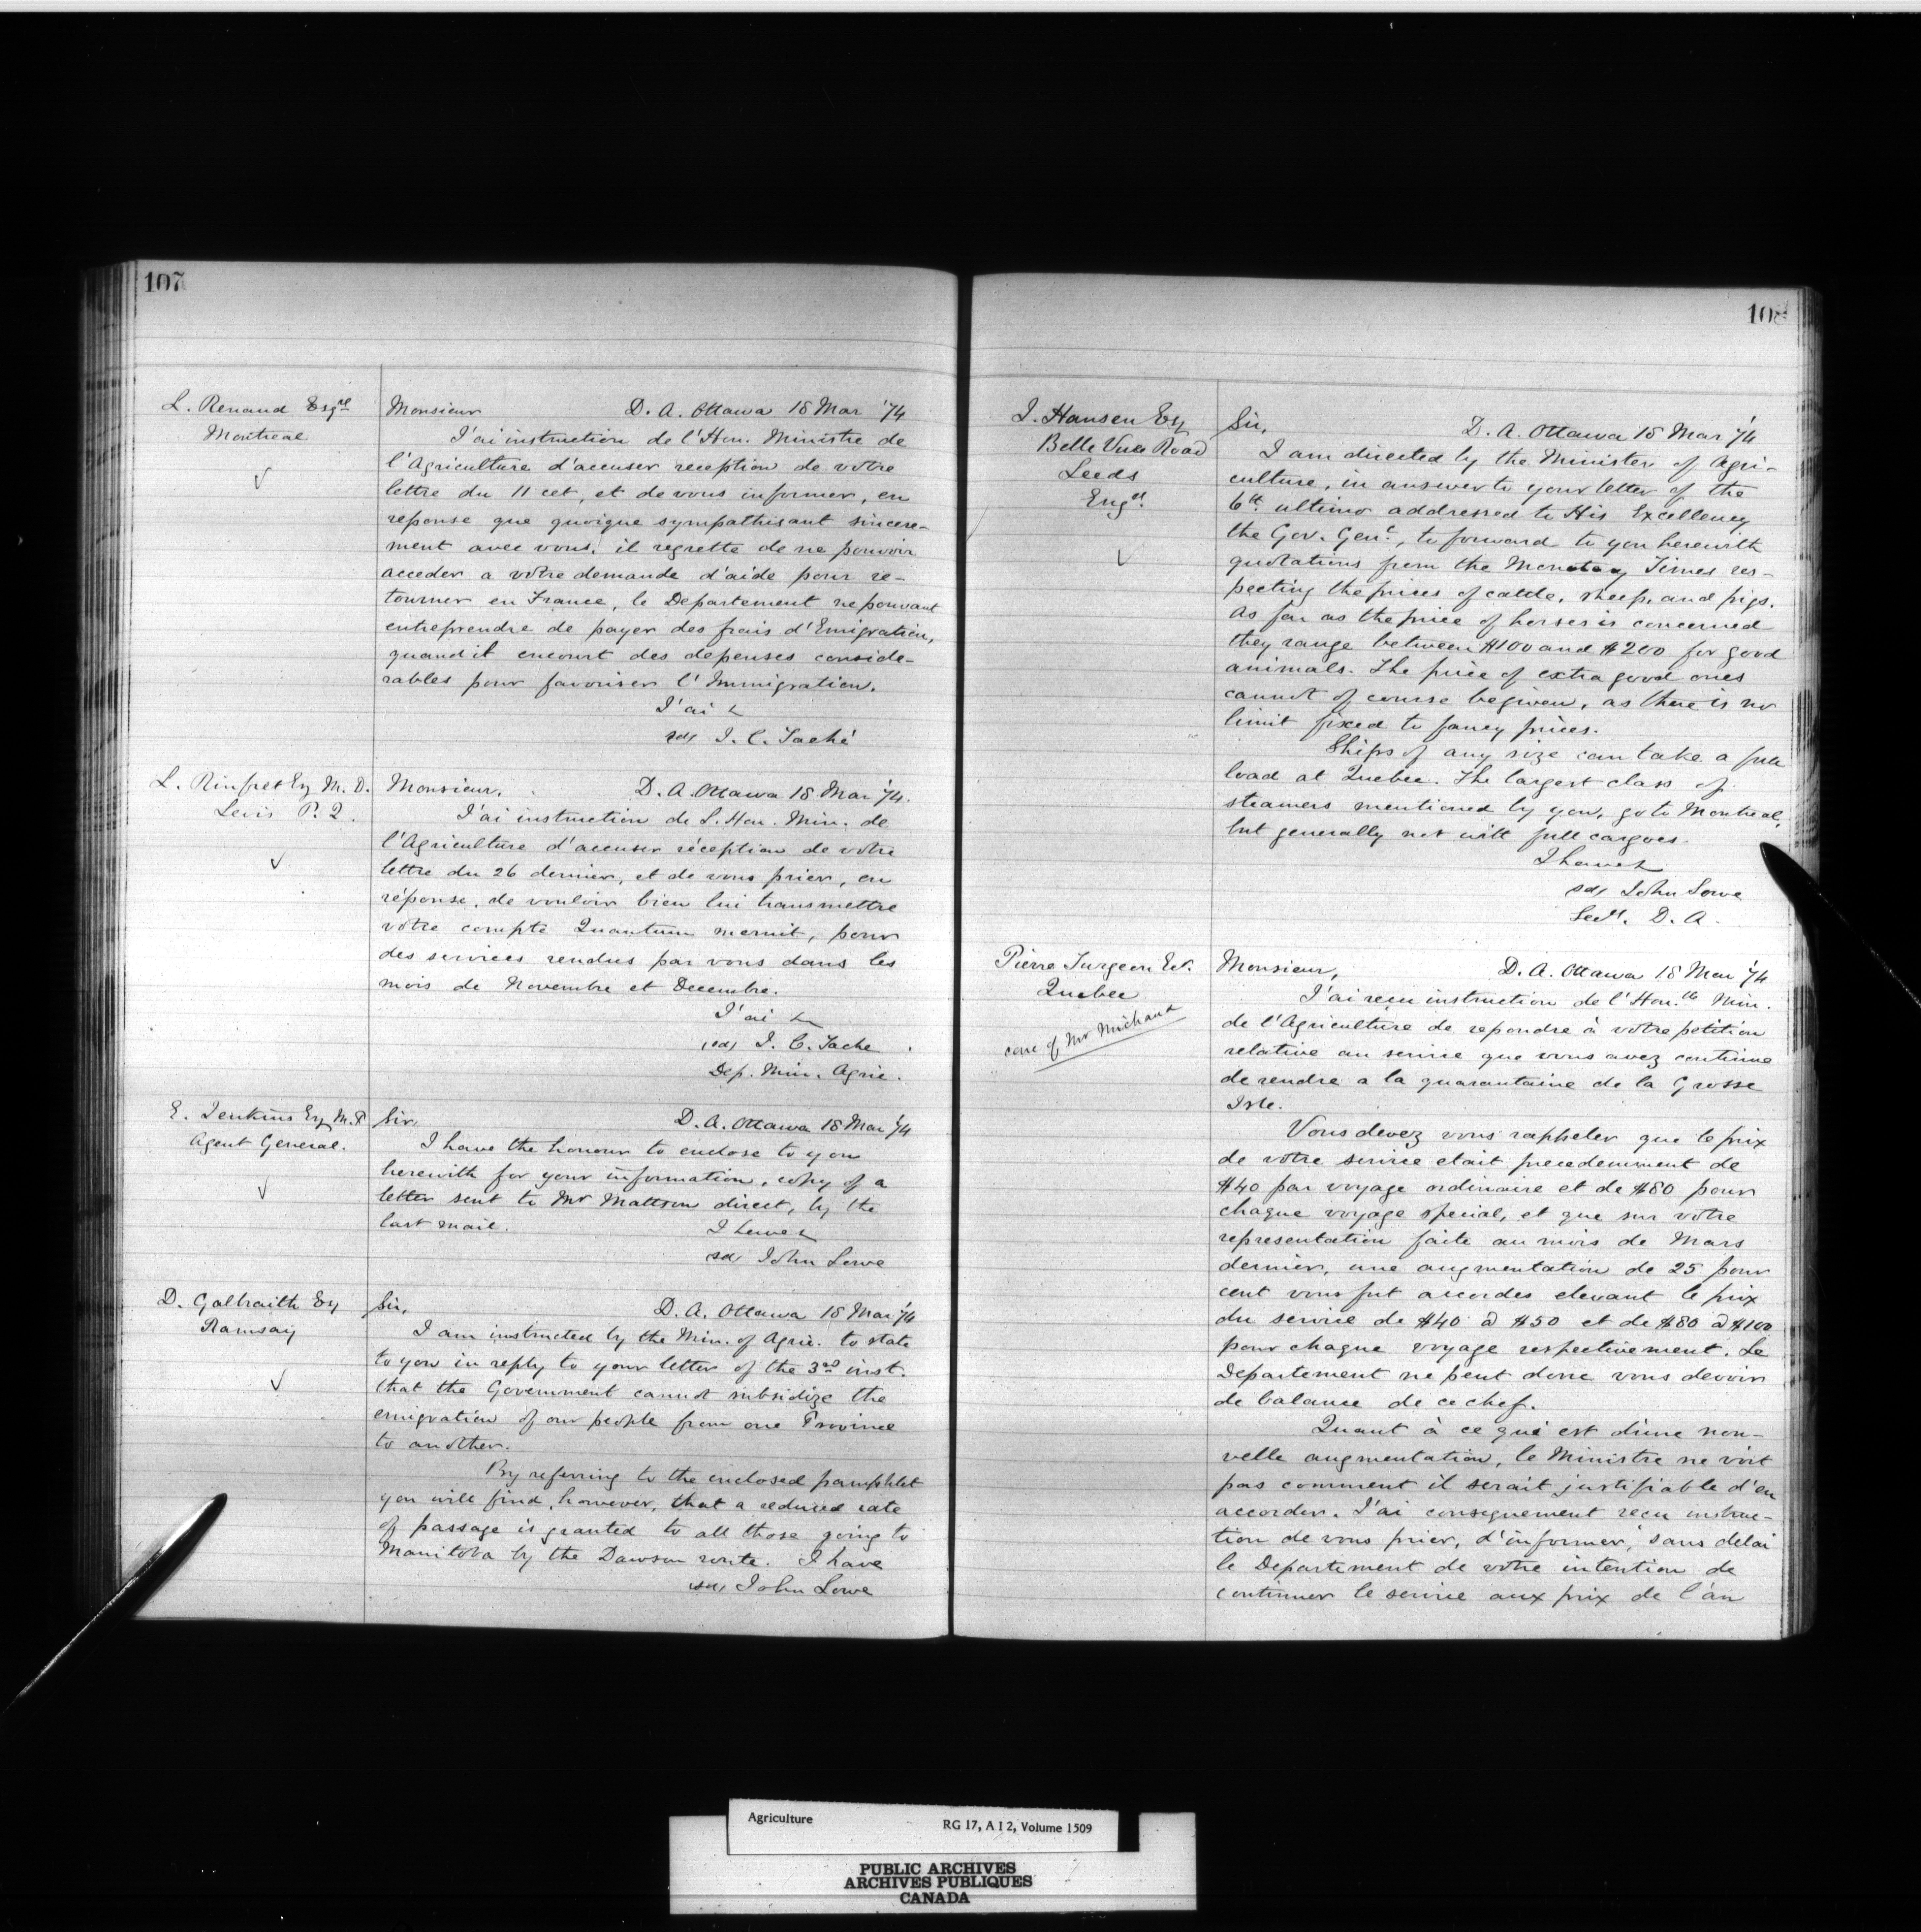 107
L. Renaud Esqre
Montreal
Monsieur D. A. Ottawa 18 Mar '74
J'ai instruction de l'Hon. Ministre de
l'Agriculture d'accuser reception de votre
lettre du 11 cet, et de vous informer, en
reponse que quoique sympathisant sincere-
ment avec vous, il regrette de ne pouvoir
acceder a votre demande d'aide pour re-
tourner en France, le Departement ne pouvant
entreprendre de payer des frais d'Emigration,
quand it encourt des depenses conside-
rables pour favoriser l'Immigration.
J'ai &
sd, J. C. Taché
L. Rinfret Esq M. D.
Levis P. Q.
Monsieur, D. A. Ottawa 18 Mar '74.
J'ai instruction de L. Hon. Min. de
l'Agriculture d'accuser réception de votre
lettre du 26 dernier, et de vous prier, en
réponse, de vouloir bien lui transmettre
votre compte Quantum meruit, pour
des services rendus par vous dans les
mois de Novembre et Decembre.
J'ai &
sd, J. C. Tache
Dep. Min. Agric.
E. Jenkins Esq M.P
Agent General.
Sir, D. A. Ottawa 18 Mar '74
I have the honour to enclose to you
herewith for your information, copy of a
letter sent to Mr Mattson direct, by the
last mail.
I have &
sd, John Lowe
D. Galbraith Esq
Ramsay
Sir, D. A. Ottawa 18 Mar '74
I am instructed by the Min. of Agric. to state
to you in reply to your letter of the 3rd inst.
that the Government cannot subsidize the
emigration of our people from one Province
to another.
By referring to the enclosed pamphlet
you will find, however, that a reduced rate
of passage is granted to all those going to
Manitoba by the Dawson route. I have
sd, John Lowe
108
J. Hansen Esq
Belle Vue Road
Leeds
Engd.
Sir, D. A. Ottawa 18 Mar '74
I am directed by the Minister of Agri-
culture, in answer to your letter of the
6th ultimo addressed to His Excellency
the Gov. Genl., to forward to you herewith
quotations from the Monetary Times res-
pecting the prices of cattle, sheep, and pigs.
As far as the price of horses is concerned
they range between $100 and $200 for good
animals. The price of extra good ones
cannot of course be given, as there is no
limit fixed to fancy prices.
Ships of any size can take a full
load at Quebec. The largest class of
steamers mentioned by you, go to Montreal,
but generally not with full cargoes.
I have &
sd, John Lowe
Secy. D. A.
Pierre Turgeon
Quebec
care of Mr Michaud
Monsieur, D. A. Ottawa 18 Mar '74
J'ai reçu instruction de l'Hon.ble Min.
de l'Agriculture de repondre à votre petition
relative au service que vous avez continue
de rendre a la quarantaine de la Grosse
Isle.
Vous devez vous rappeler que le prix
de votre service etait precedemment de
$40 par voyage ordinaire et de $80 pour
chaque voyage special, et que sur votre
representation faite au mois de Mars
dernier, une augmentation de 25 pour
cent vous fut accordes elevant le prix
du service de $40 à $50 et de $80 à $100
pour chaque voyage respectivement. Le
Departement ne peut donc vous devoir
de balance de ce chef.
Quant à ce qui est d'une nou-
velle augmentation, le Ministre ne voit
pas comment il serait justifiable d'en
accorder. J'ai consequement reçu instruc-
tion de vous prier, d'informer, sans delai
le Departement de votre intention de
continuer le service aux prix de l'an
Agriculture RG 17, A I 2, Volume 1509
PUBLIC ARCHIVES
ARCHIVES PUBLIQUES
CANADA